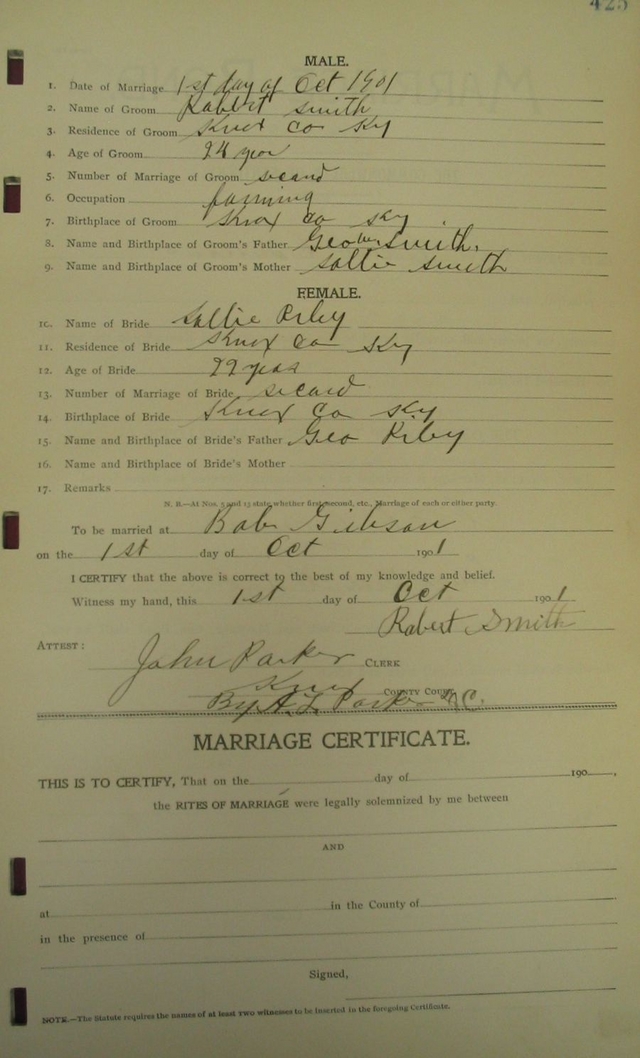 425
MALE.
1. Date of Marriage 1st day of Oct 1901
2. Name of Groom Robert Smith
3. Residence of Groom Knox Co Ky
4. Age of Groom 24 year
5. Number of Marriage of Groom second
6. Occupation farming
7. Birthplace of Groom Knox Co Ky
8. Name and Birthplace of Groom's Father Geo Smith.
9. Name and Birthplace of Groom's Mother Sallie Smith
FEMALE.
10. Name of Bride Sallie Riley
11. Residence of Bride Knox Co Ky
12. Age of Bride 22 years
13. Number of Marriage of Bride second
14. Birthplace of Bride Knox Co Ky
15. Name and Birthplace of Bride's Father Geo Riley
16. Name and Birthplace of Bride's Mother
17. Remarks
N. B.—At Nos. 5 and 13 state whether first, second, etc., Marriage of each or either party.
To be married at Bob Gibson
on the 1st day of Oct 1901
I CERTIFY that the above is correct to the best of my knowledge and belief.
Witness my hand, this 1st day of Oct 1901
Robert Smith
ATTEST:
John Parker CLERK
Knox COUNTY COURT
By A. L. Parker D.C.
MARRIAGE CERTIFICATE.
THIS IS TO CERTIFY, That on the day of 190 ,
the RITES OF MARRIAGE were legally solemnized by me between
AND
at in the County of
in the presence of
Signed,
NOTE.—The Statute requires the names of at least TWO witnesses to be inserted in the foregoing Certificate.